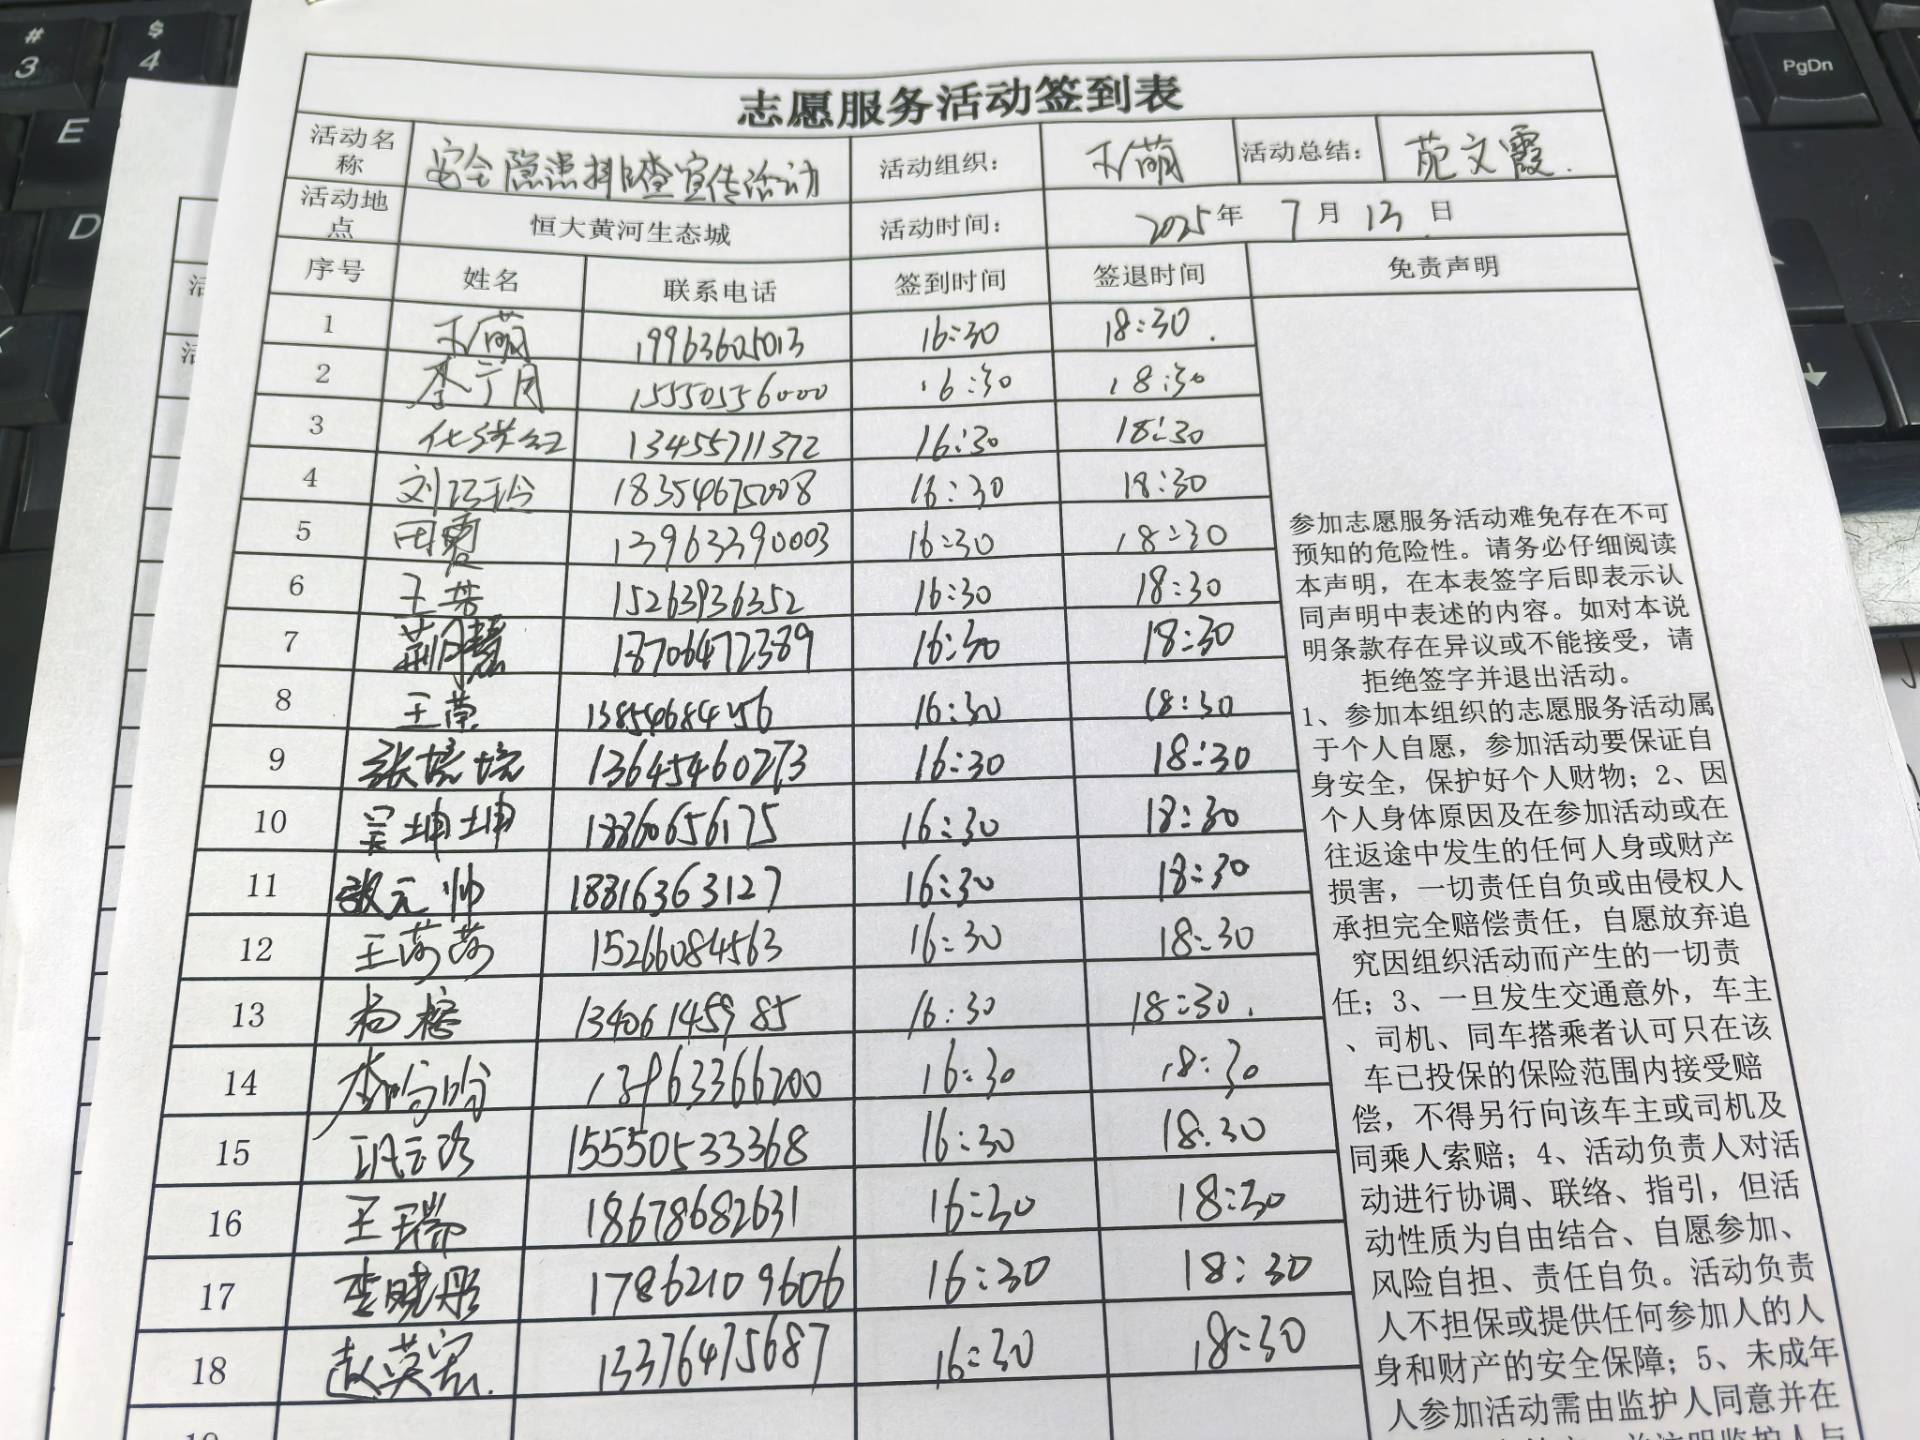 志愿服务活动签到表
活动名称 安全隐患排查宣传活动 活动组织： 王萌 活动总结： 苑文霞.
活动地点 恒大黄河生态城 活动时间： 2025年 7月 13日
序号 姓名 联系电话 签到时间 签退时间 免责声明
1 王萌 19963605013 16:30 18:30.
2 15550556000 16:30 18:30
3 13455711372 16:30 18:30
4 刘巧玲 18354675008 16:30 18:30
5 田霞 13963390003 16:30 18:30
6 王芳 15263936352 16:30 18:30
7 荆月慧 13706472389 16:30 18:30
8 王荣 13854684456 16:30 18:30
9 张境境 13645460273 16:30 18:30
10 吴坤坤 18860656175 16:30 18:30
11 元帅 18816363127 16:30 18:30
12 王莉莉 15266084563 16:30 18:30
13 杨榕 13406145985 16:30 18:30.
14 李 13963366200 16:30 18:30
15 15550533368 16:30 18:30
16 王瑞 18678682631 16:30 18:30
17 李晓彤 17862109606 16:30 18:30
18 赵英宏. 13376475687 16:30 18:30
参加志愿服务活动难免存在不可
预知的危险性。请务必仔细阅读
本声明，在本表签字后即表示认
同声明中表述的内容。如对本说
明条款存在异议或不能接受，请
拒绝签字并退出活动。
1、参加本组织的志愿服务活动属
于个人自愿，参加活动要保证自
身安全，保护好个人财物；2、因
个人身体原因及在参加活动或在
往返途中发生的任何人身或财产
损害，一切责任自负或由侵权人
承担完全赔偿责任，自愿放弃追
究因组织活动而产生的一切责
任；3、一旦发生交通意外，车主
、司机、同车搭乘者认可只在该
车已投保的保险范围内接受赔
偿，不得另行向该车主或司机及
同乘人索赔；4、活动负责人对活
动进行协调、联络、指引，但活
动性质为自由结合、自愿参加、
风险自担、责任自负。活动负责
人不担保或提供任何参加人的人
身和财产的安全保障；5、未成年
人参加活动需由监护人同意并在
# 3
$ 4
E
D
PgDn